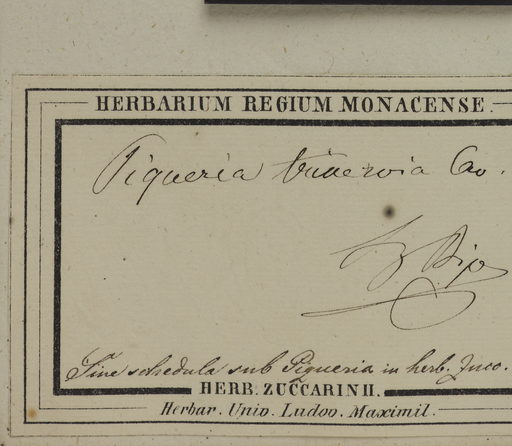 HERBARIUM REGIUM MONACENSE.
Piqueria trinervia Cav.
Sine schedula sub Piqueria in herb. Zucc.
HERB. ZUCCARINII.
Herbar. Univ. Ludov. Maximil.